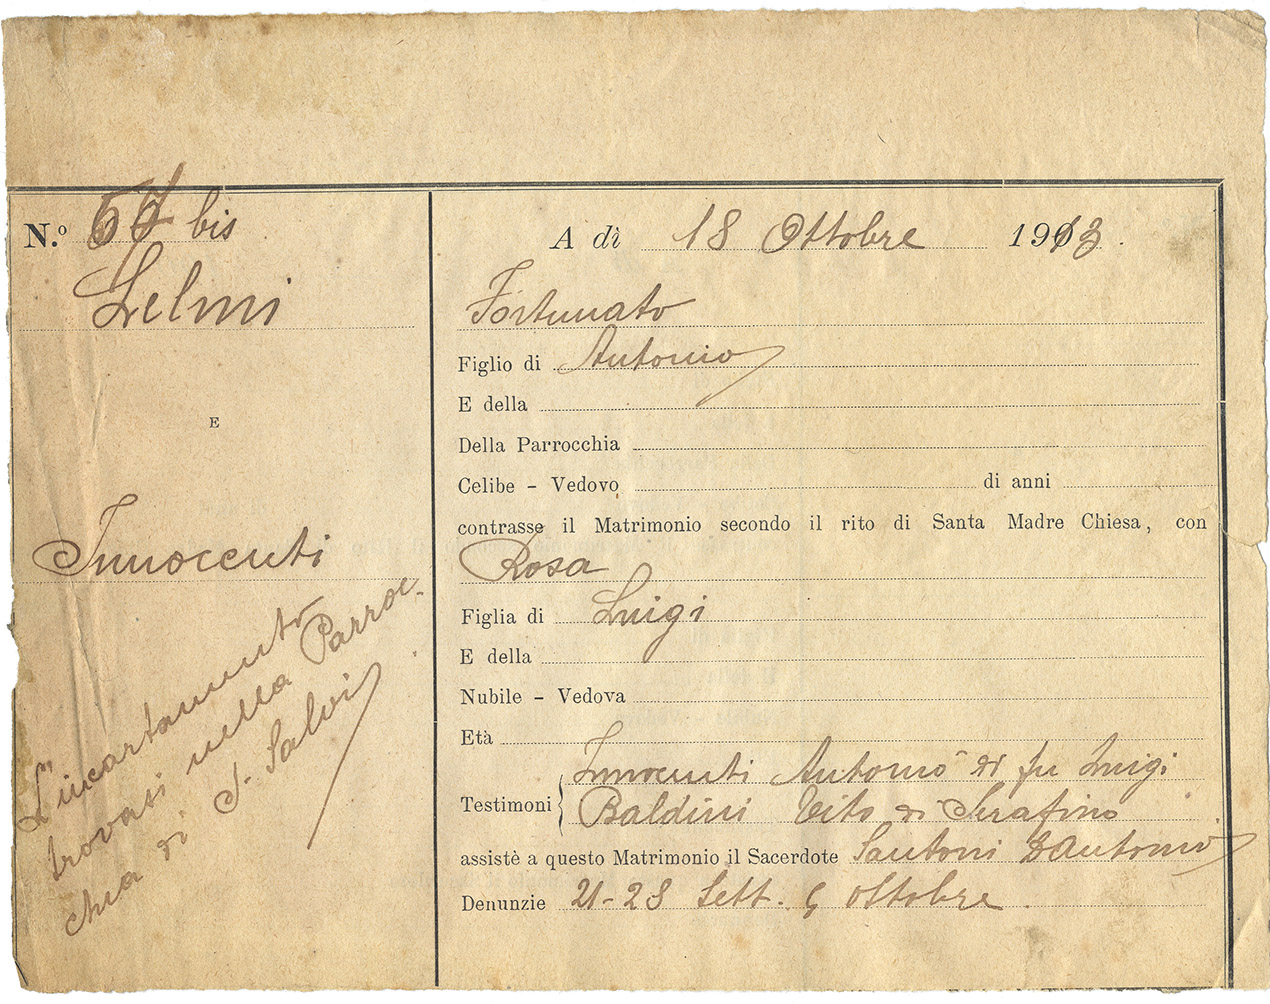 N.º 57 bis
Lelmi
E
Innocenti
L'incartamento
trovasi nella Parroc-
chia di S. Salvi
A dì 18 Ottobre 1913.
Fortunato
Figlio di Antonio
E della
Della Parrocchia
Celibe - Vedovo di anni
contrasse il Matrimonio secondo il rito di Santa Madre Chiesa, con
Rosa
Figlia di Luigi
E della
Nubile - Vedova
Età
Innocenti Antonio di fu Luigi
Testimoni { Baldini Vito di Serafino
assistè a questo Matrimonio il Sacerdote Santoni D Antonio
Denunzie 21-28 Sett. 5 Ottobre.